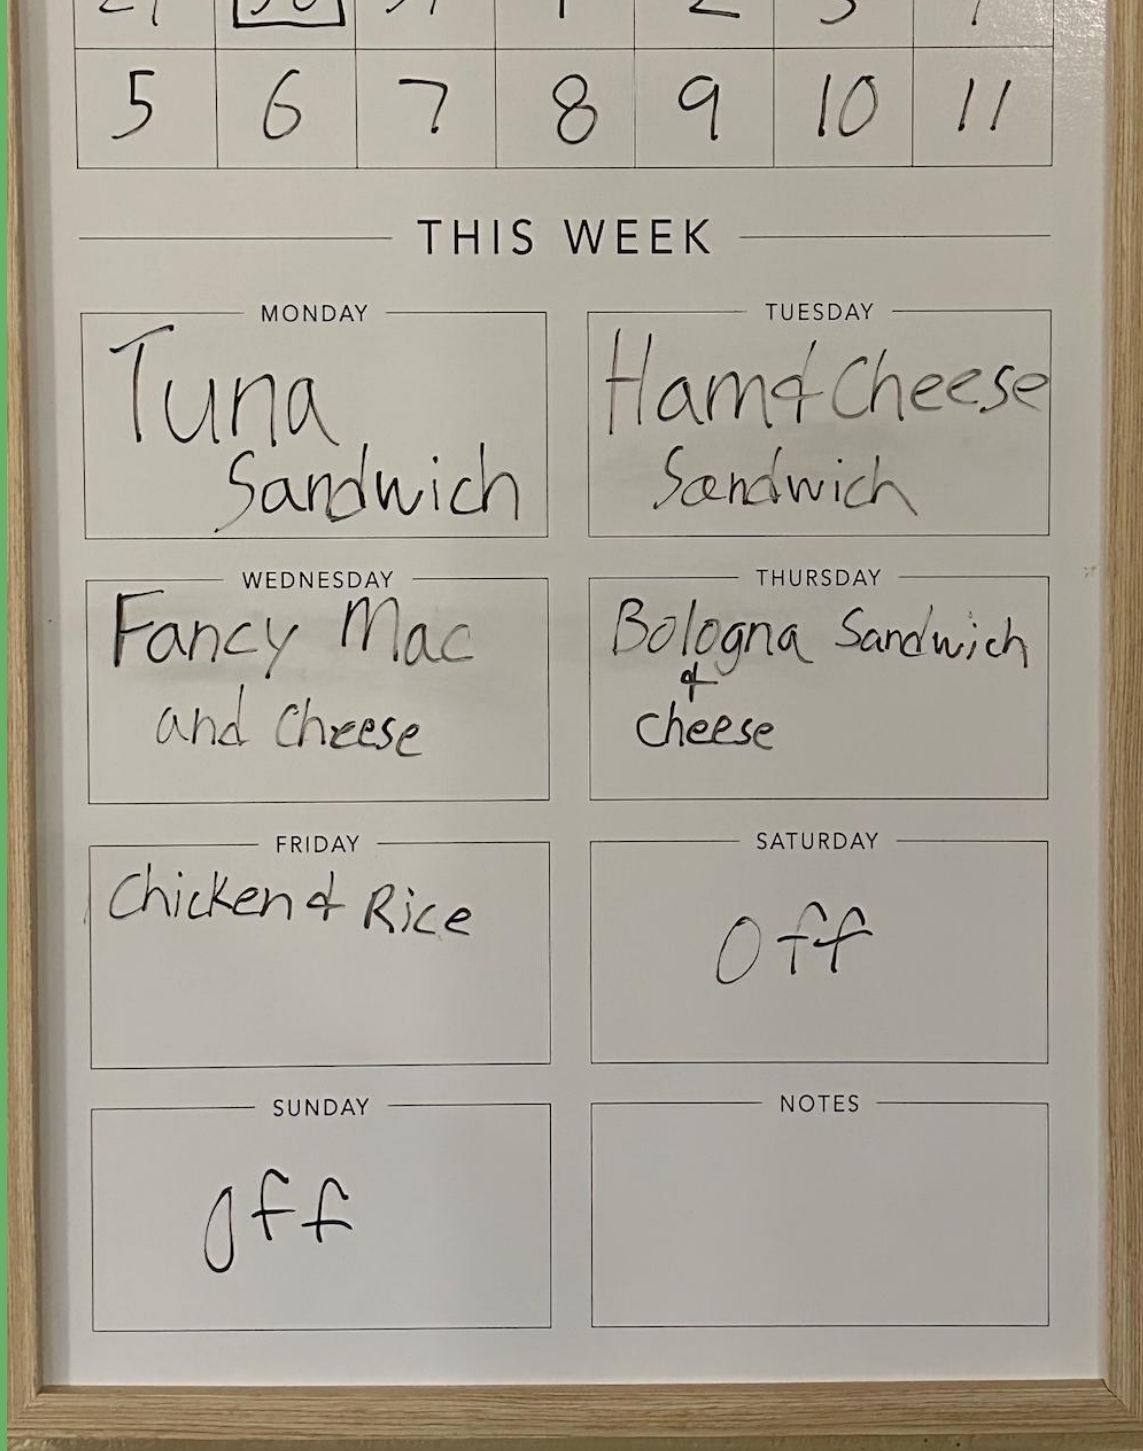 5 6 7 8 9 10 11
THIS WEEK
MONDAY
Tuna
Sandwich
TUESDAY
Ham & Cheese
Sandwich
WEDNESDAY
Fancy Mac
and Cheese
THURSDAY
Bologna Sandwich
&
cheese
FRIDAY
Chicken & Rice
SATURDAY
Off
SUNDAY
Off
NOTES